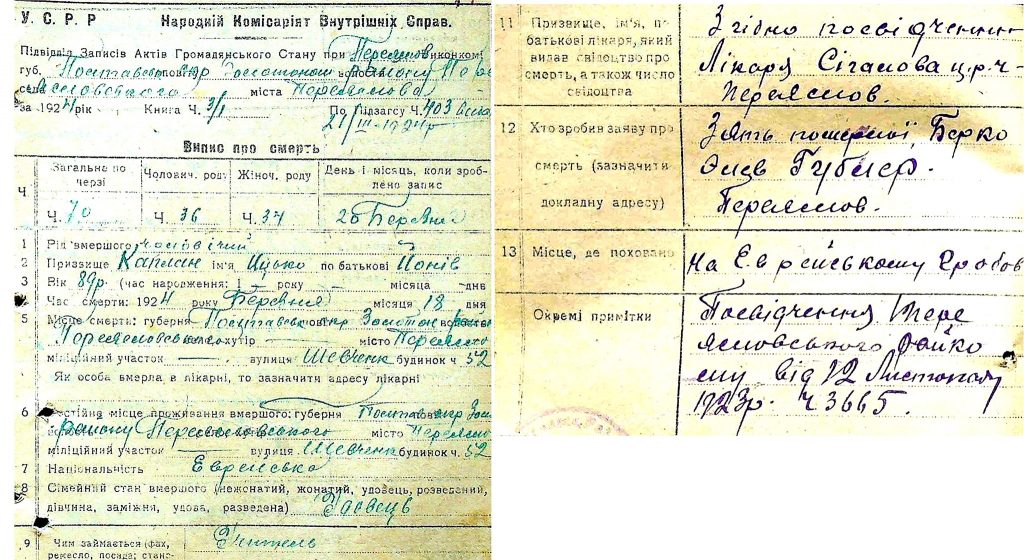 У. С. Р. Р Народній Комісаріят Внутрішніх Справ.
Підвідділ Записів Актів Громадянського Стану при Переяслов виконком
губ. Полтавськ
міста Переяслова
за 1924 рік Книга Ч. 3/1 По Підзагсу Ч. 403
21/III-1924р
Випис про смерть
Ч
Загальне по черзі
Чоловіч. роду
Жіноч. роду
День і місяць, коли зроблено запис
Ч. 70
Ч. 36
Ч. 34
20 Березня
1 Рід вмершого чоловічий
2 Призвище Каплан ім'я Ццько по батькові Йонів
3 Вік 89р. (час народження: 1 — року — місяца — дня
4 Час смерти: 1924 року Березня місяця 18 дня
5 Місце смерть: губерня Полтавська Золотон
Переясловського хутір — місто Переясло
міліційний участок — вулиця Шевченк будинок ч. 52
Як особа вмерла в лікарні, то зазначити адресу лікарні
6 Постійне місце проживання вмершого: губерня Полтав
району Переясловського місто Переясло
міліційний участок — вулиця Шевченк будинок ч. 52
7 Національність Еврейська
8 Сімейний стан вмершого (нежонатий, жонатий, удовець, розведений,
дівчина, заміжня, удова, разведена) Вдовець
9 Чим займається (фах, Учитель
ремесло, посада; стано-
11 Призвище, ім'я, по-
батькові лікаря, який
видав свідоцтво про
смерть, а також число
свідоцтва
Згідно посвідчення
Лікаря Сігалова
Переяслов.
12 Хто зробив заяву про
смерть (зазначити
докладну адресу)
Зять помершої Берко
Губнер.
Переяслов.
13 Місце, де поховано
На Еврейському гробов
Окремі примітки
Посвідчення Пере
ясловського Райко
му від 12 Листопада
1923р. ч 3665.